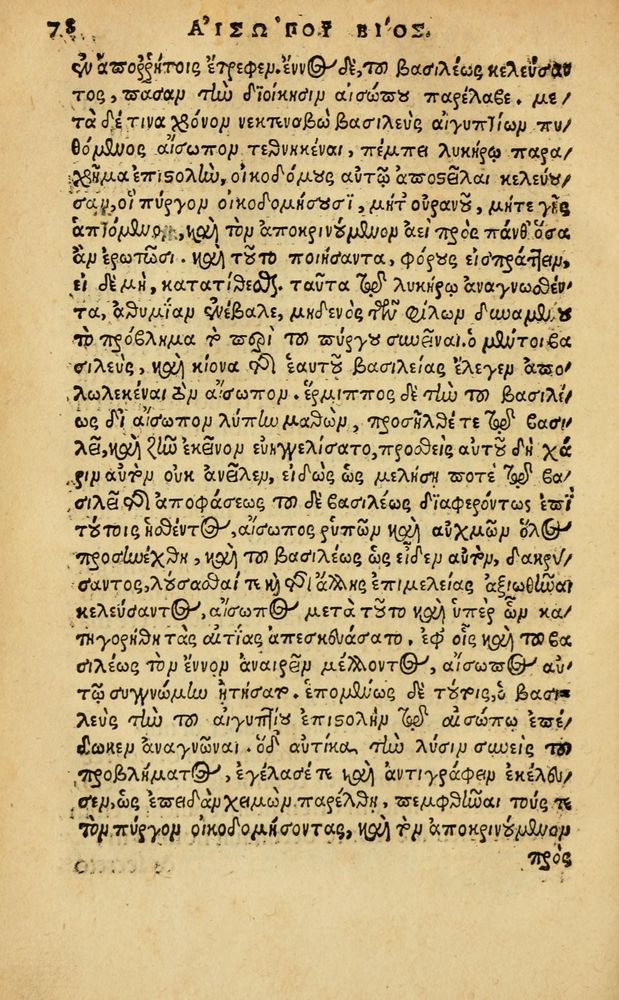 78 ΑἸΣΩ´ΠΟΥ ΒΙ´ΟΣ.
ἐν ἀποῤῥήτοις ἔτρεφεν. ἔννος δὲ, τοῦ βασιλέως κελεύσαν
τος, πᾶσαν τὴν διοίκησιν αἰσώπου παρέλαβε. με/
τὰ δέ τινα χρόνον νεκτιναβὼ βασιλεὺς αἰγυπτίων πυ/
θόμενος αἴσωπον τεθνηκέναι, πέμπει λυκήρῳ παρα/
χρῆμα ἐπιστολὴν, οἰκοδόμους αὐτῷ ἀποστεῖλαι κελεύου/
σαν, οἳ πύργον οἰκοδομήσουσι, μήτ' οὐρανοῦ, μήτε γῆς
ἁπτόμενον, καὶ τὸν ἀποκρινούμενον ἀεὶ πρὸς πάνθ' ὅσα
ἂν ἐρωτῶσι. καὶ τοῦτο ποιήσαντα, φόρους εἰσπράττειν,
εἰ δὲ μὴ, κατατίθεσθαι. ταῦτα τῷ λυκήρῳ ἀναγνωσθέν/
τα, ἀθυμίαν ἐνέβαλε, μηδενὸς τῶν φίλων δυναμένου
τὸ πρόβλημα τὸ περὶ τοῦ πύργου συνεῖναι. ὁ μέντοι βα
σιλεὺς, καὶ κίονα τῆς ἑαυτοῦ βασιλείας ἔλεγεν ἀπο/
λωλεκέναι τὸν αἴσωπον. ἕρμιππος δὲ τὴν τοῦ βασιλέ/
ως δι' αἴσωπον λύπην μαθὼν, προσῆλθέ τε τῷ βασι/
λεῖ, καὶ ζῆν ἐκεῖνον εὐηγγελίσατο, προσθεὶς αὐτοῦ δὴ χά/
ριν αὐτὸν οὐκ ἀνεῖλεν, εἰδὼς ὡς μελήσῃ ποτὲ τῷ βα/
σιλεῖ τῆς ἀποφάσεως τοῦ δὲ βασιλέως διαφερόντως ἐπὶ
τούτοις ἡσθέντος, αἴσωπος ῥυπῶν καὶ αὐχμῶν ὅλος
προσηνέχθη, καὶ τοῦ βασιλέως ὡς εἶδεν αὐτὸν, δακρύ/
σαντος, λούσασθαί τε καὶ τῆς ἄλλης ἐπιμελείας ἀξιωθῆναι
κελεύσαντος, αἴσωπος μετὰ τοῦτο καὶ ὑπὲρ ὧν κα/
τηγορήθη τὰς αἰτίας ἀπεσκευάσατο. ἐφ' οἷς καὶ τοῦ βα
σιλέως τὸν ἔννον ἀναιρεῖν μέλλοντος, αἴσωπος αὐ/
τῷ συγγνώμην ᾔτησεν. ἑπομένως δὲ τούτοις, ὁ βασι=
λεὺς τὴν τοῦ αἰγυπτίου ἐπιστολὴν τῷ αἰσώπῳ ἐπέ/
δωκεν ἀναγνῶναι. ὁ δ' αὐτίκα τὴν λύσιν συνεὶς τοῦ
προβλήματος, ἐγέλασέ τε καὶ ἀντιγράφειν ἐκέλευ/
σεν, ὡς ἐπειδὰν χειμὼν παρέλθῃ, πεμφθῆναι τούς τε
τὸν πύργον οἰκοδομήσοντας, καὶ τὸν ἀποκρινούμενον
πρὸς